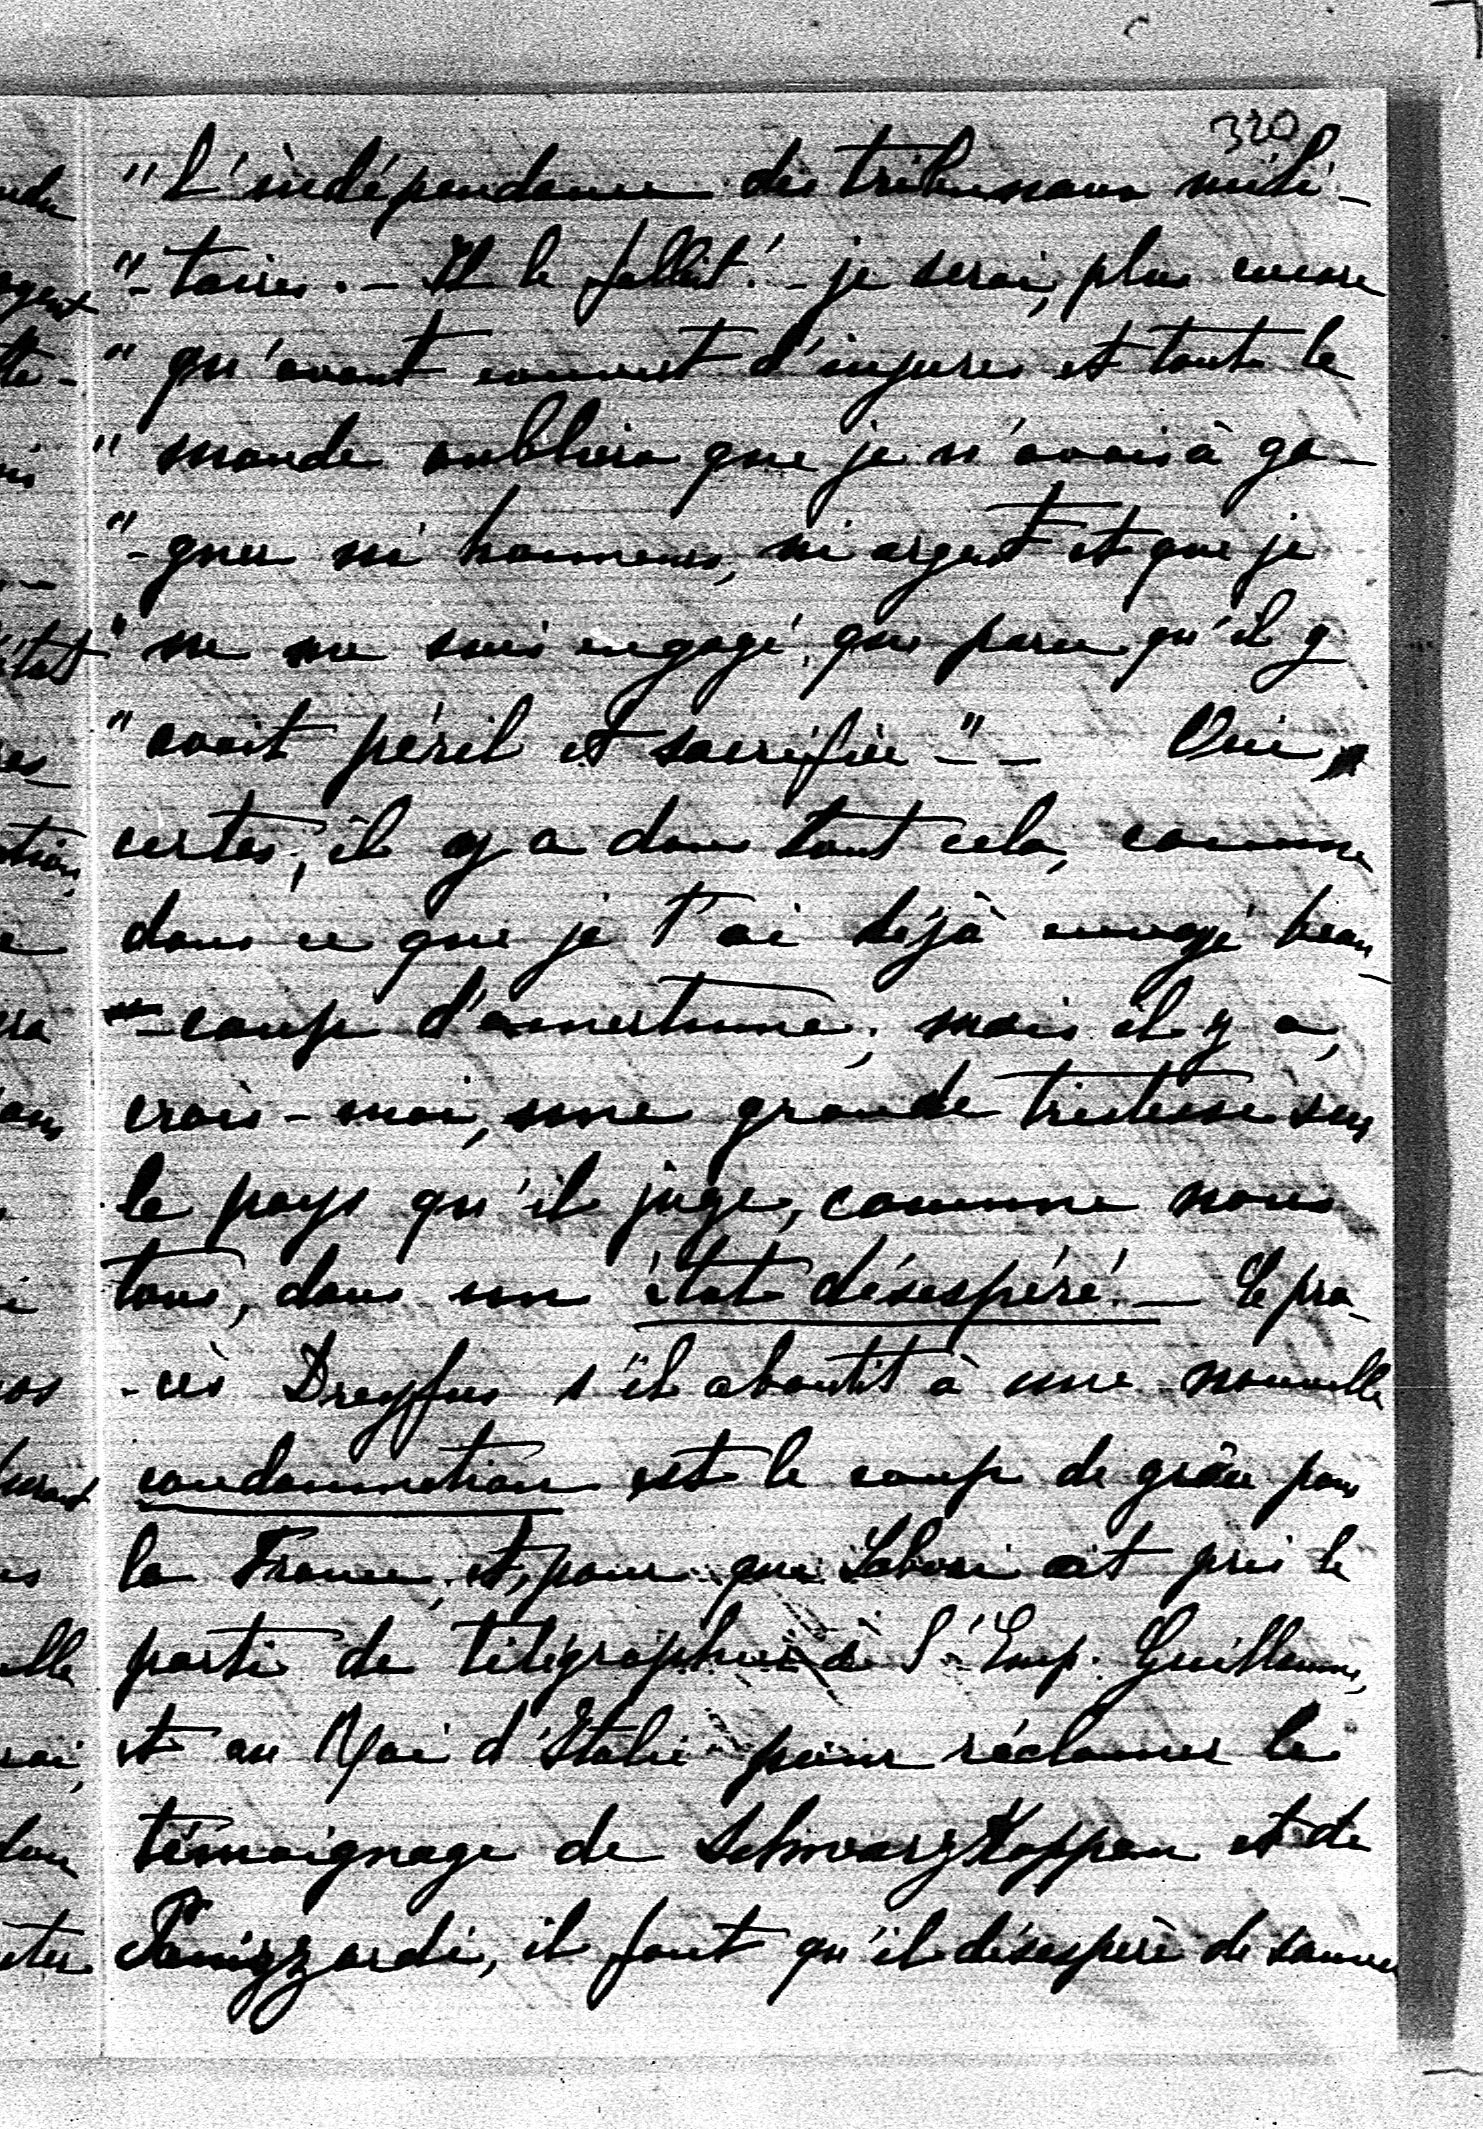 320
"L'indépendance des tribunaux mili-
"-taires. - Il le fallait! - je serai, plus encore
" qu'avant couvert d'injures et tout le
" monde oubliera que je n'avais à ga-
"-gner ni honneurs, ni argent et que je
" ne me suis engagé que parce qu'il y
" avait péril et sacrifice - " - Oui,
certes, il y a dans tout cela, comme
dans ce que je t'ai déjà envoyé beau-
-coup d'amertume, mais il y a,
crois-moi, une grande tristesse sur
le pays qu'il juge, comme nous
tous, dans un état désespéré. - Le pro-
-cès Dreyfus s'il aboutit à une nouvelle
condamnation est le coup de grâce pour
la France, et, pour que Labori ait pris le
parti de télégraphier à l'Emp. Guillaume,
et au Roi d'Italie pour réclamer le
témoignage de Schwarzkoppen et de
Panizzardi, il faut qu'il désespère de sauver